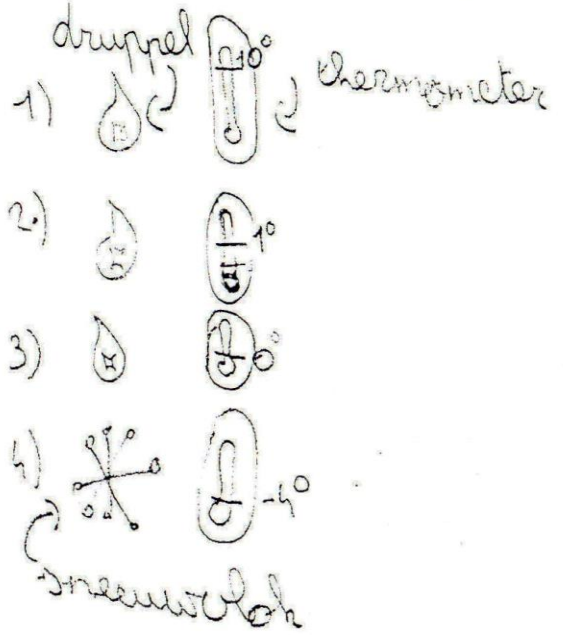 druppel
thermometer
1) 10°
2.) 1°
3) 0°
4) -4°
sneeuwvlok